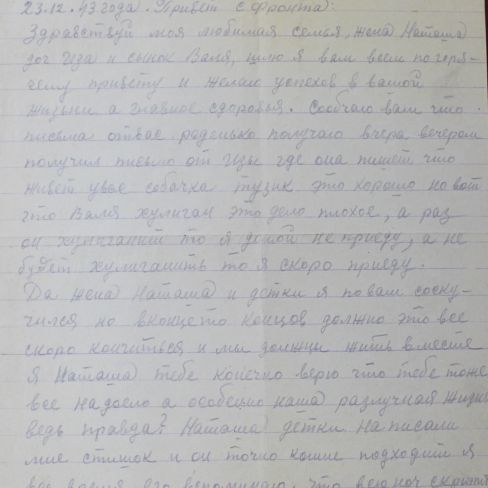 23.12.43 года. Привет с фронта:
Здравствуй моя любимая семья, жена Наташа
доч Иза и сынок Валя, шлю я вам всем по горя-
чему привету и желаю успехов в вашой
жизьни а главное здоровья. Сообчаю вам что
письма отвас роденько получаю вчера вечером
получил письмо от Изы где она пишет что
живет увас собачка тузик это хорошо но вот
что Валя хулиган это дело плохое, а раз
он хулиганит то я домой не приеду, а не
будет хулиганить то я скоро приеду.
Да жена Наташа и детки я по вам соску-
чился но вконце то концов должно это все
скоро кончиться и мы должны жить вместе
я Наташа тебе конечно верю что тебе тоже
все надоело а особено наша разлучная жизнь
ведь правда? Наташа детки написали
мне стишок и он точно комне подходит я
все время его вспоминаю, что всю ноч